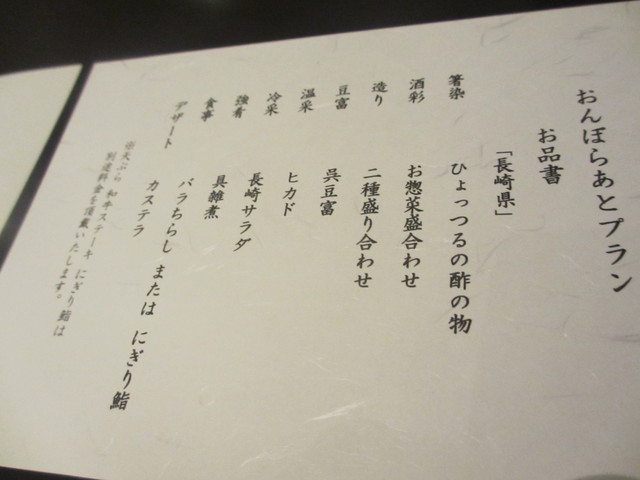 おんぼらあとプラン
お品書
「長崎県」
箸染 ひょっつるの酢の物
酒彩 お惣菜盛合わせ
造り 二種盛り合わせ
豆富 呉豆富
温采 ヒカド
冷采 長崎サラダ
強肴 具雑煮
食事 バラちらし または にぎり鮨
デザート カステラ
※天ぷら 和牛ステーキ にぎり鮨は
別途料金を頂戴いたします。